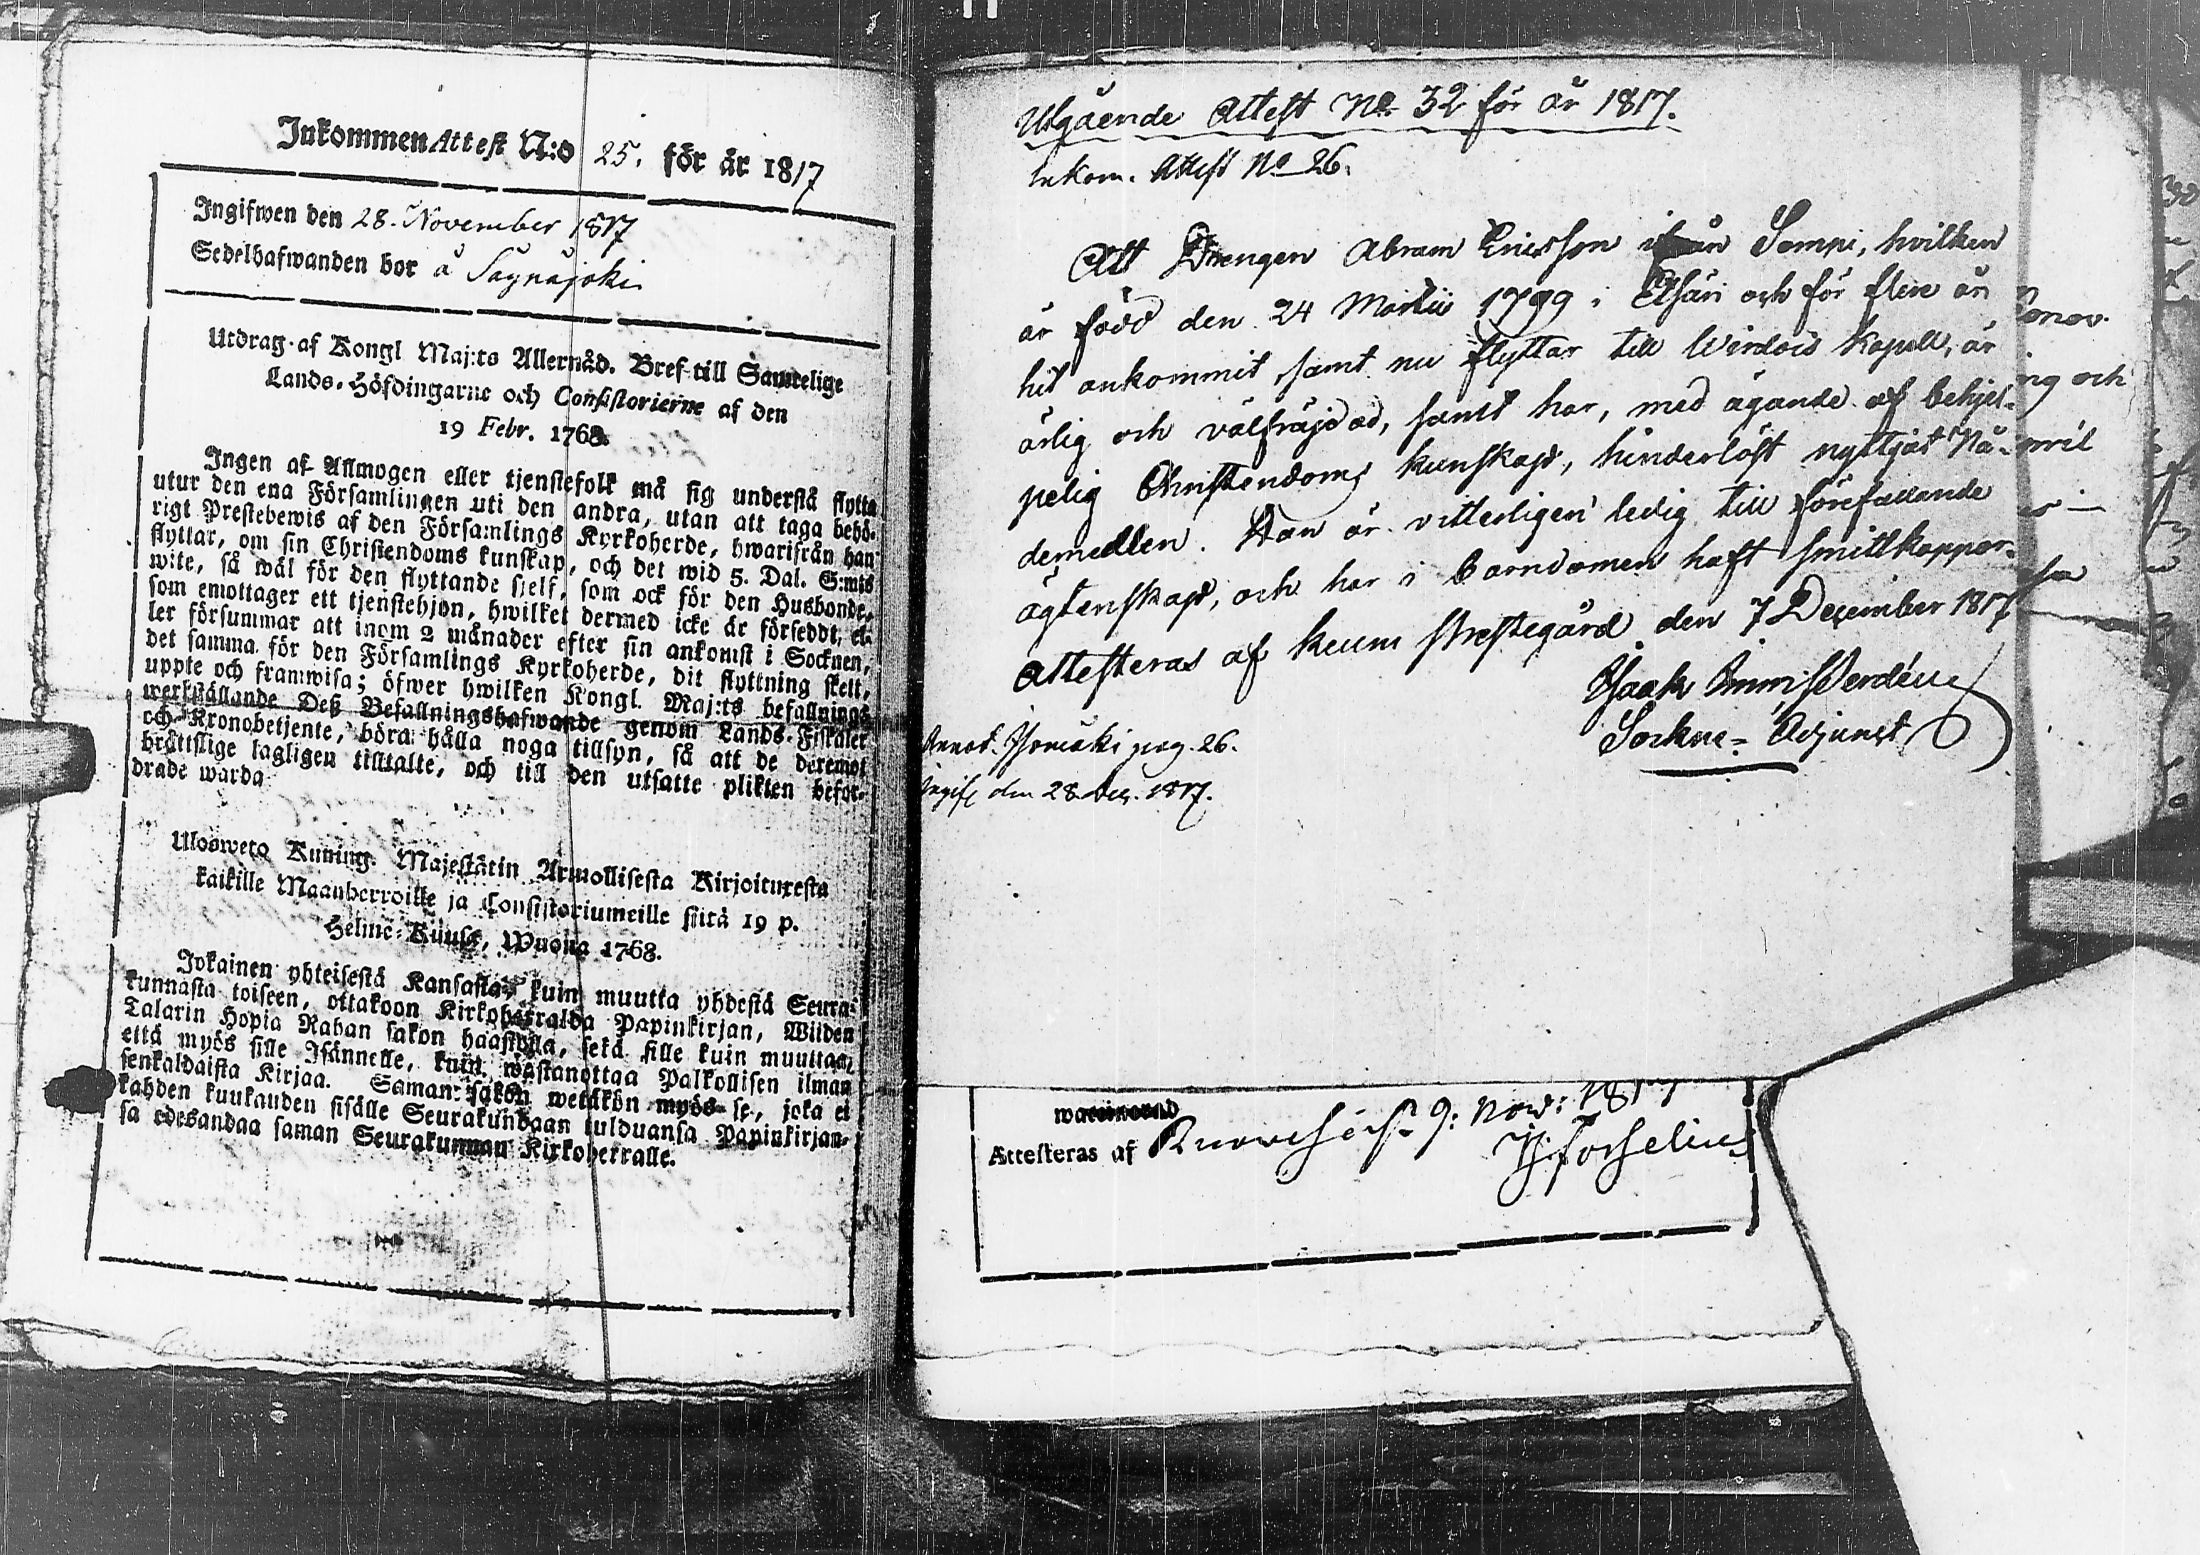 Inkommen Attest N:o 25. för år 1817
Ingifwen den 28. November 1817
Sedelhafwanden bor å Säynäjoki
Utdrag af Kongl Maj:ts Allernåd. Bref till Samtelige
Lands-Höfdingarne och Consistorierne af den
19 Febr. 1768.
Ingen af Allmogen eller tjenstefolk må sig understå flytta
utur den ena Församlingen uti den andra, utan att taga behö-
rigt Prestebewis af den Församlings Kyrkoherde, hwarifrån han
flyttar, om sin Christendoms kunskap, och det wid 5. Dal. S:mts
wite, så wäl för den flyttande sjelf, som ock för den Husbonde,
som emottager ett tjenstehjon, hwilket dermed icke är försedt, el-
ler försummar att inom 2 månader efter sin ankomst i Socknen,
det samma för den Församlings Kyrkoherde, dit flyttning skett,
uppte och framwisa; öfwer hwilken Kongl. Maj:ts befallnings
werkställande Deß Befallningshafwande genom Lands-Fiskaler
och Kronobetjente, böra hålla noga tillsyn, så att de deremot
bråttslige lagligen tilltalte, och till den utsatte plikten befor-
drade warda
Ulosweto Kuning. Majestätin Armollisesta Kirjoituxesta
kaikille Maanherroille ja Consistoriumeille siitä 19 p.
Helme-Kuusa, Wuona 1768.
Jokainen yhteisestä Kansasta, kuin muutta yhdestä Seura-
kunnasta toiseen, ottakoon Kirkoherralda Papinkirjan, Wiiden
Talarin Hopia Rahan sakon haastolla, sekä sille kuin muuttaa,
että myös sille Isännelle, kuin wastanottaa Palkollisen ilman
senkaldaista Kirjaa. Saman sakon wetäkön myös se, joka ei
kahden kuukauden sisälle Seurakundaan tulduansa Papinkirjan-
sa edesandaa saman Seurakunnan Kirkoherralle.
Utgående Attest No 32 för år 1817.
Inkom. Attest No 26.
Att Drengen Abram Ericsson ifrån Sompi, hvilken
är född den 24 Martii 1799 i Etsäri och för flere år
hit ankommit, samt nu flyttar till Wirdois Kapell, är
ärlig och välfräjdad, samt har, med ägande af behjel-
pelig Christendoms kunskap, hinderlöst nyttjat Nå-
demedlen. Han är vitterligen ledig till förefallande
ägtenskap, och har i barndomen haft smittkoppor.
Attesteras af Keuru Prestegård den 7 December 1817
Isaak
Sockne-Adjunct
Annot. pag. 26.
Ingif. den 28 Dec. 1817.
Attesteras af Ruovesi 9: Nov: 1817
och